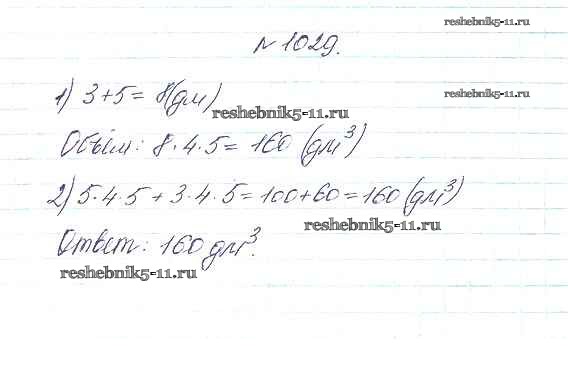 reshebnik5-11.ru
№ 1029.
reshebnik5-11.ru
1) 3+5= 8(дм)
reshebnik5-11.ru
Объём: 8·4·5= 160 (дм³)
2) 5·4·5 + 3·4·5=100+60=160 (дм³)
reshebnik5-11.ru
Ответ: 160 дм³.
reshebnik5-11.ru